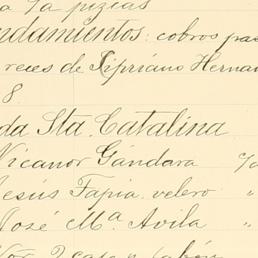 ja pizcas
ndamientos: cobros pas
reces de Cipriano Hernan
8.
da Sta. Catalina
Nicanor Gándara
esús Tapia, velero "
José Mª Avila "